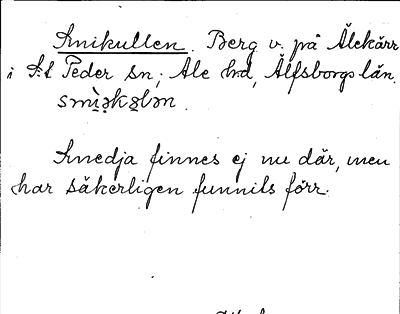 Smikullen. Berg v. på Älekärr
i S:t Peder sn; Ale hrd, Älfsborgs län.
smìəkələn.
Smedja finnes ej nu där, men
har säkerligen funnits förr.